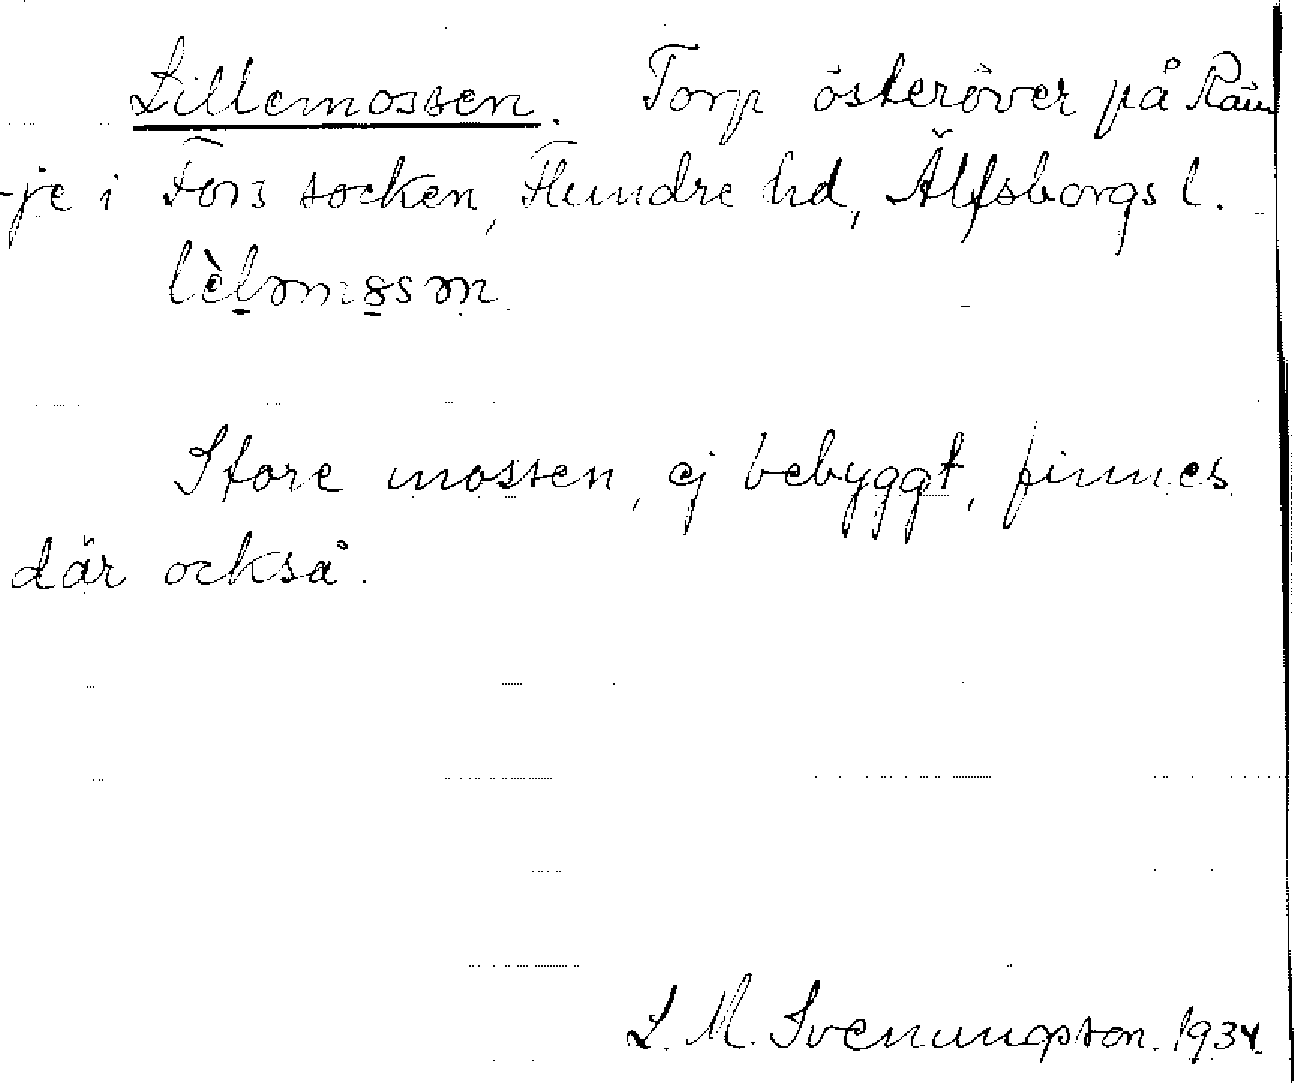 Lillemossen. Torp österöver på Rån
-je i Fors socken, Flundre hd, Älfsborgs l.
Store mossen, ej bebyggt, finnes
där också.
L. M. Svenungsson. 1934.